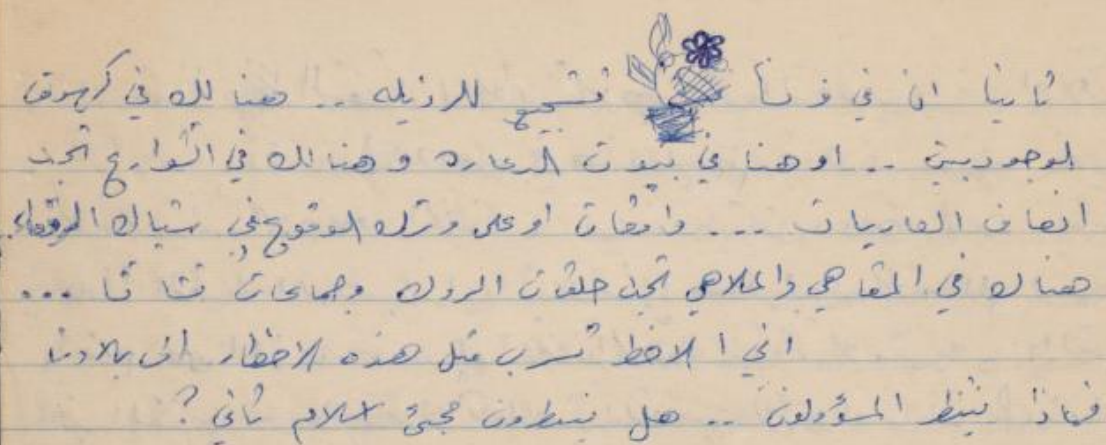 ثانيا ان في فرنسا تشجيع للرذيله .. هنالك في كهوف
الوجوديين .. او هنا في بيوت الدعاره وهنالك في الشوارع تجد
انصاف العاريات ... واقفات او على وشك الوقوع في شباك
هناك في المقاهي والملاهي تجد حلقات الروك وجماعات ...
اني الاحظ تسرب مثل هذه الاخطار الى بلادنا
فماذا ينتظر المسؤولون .. هل ينتظرون مجئ اسلام ثاني ؟